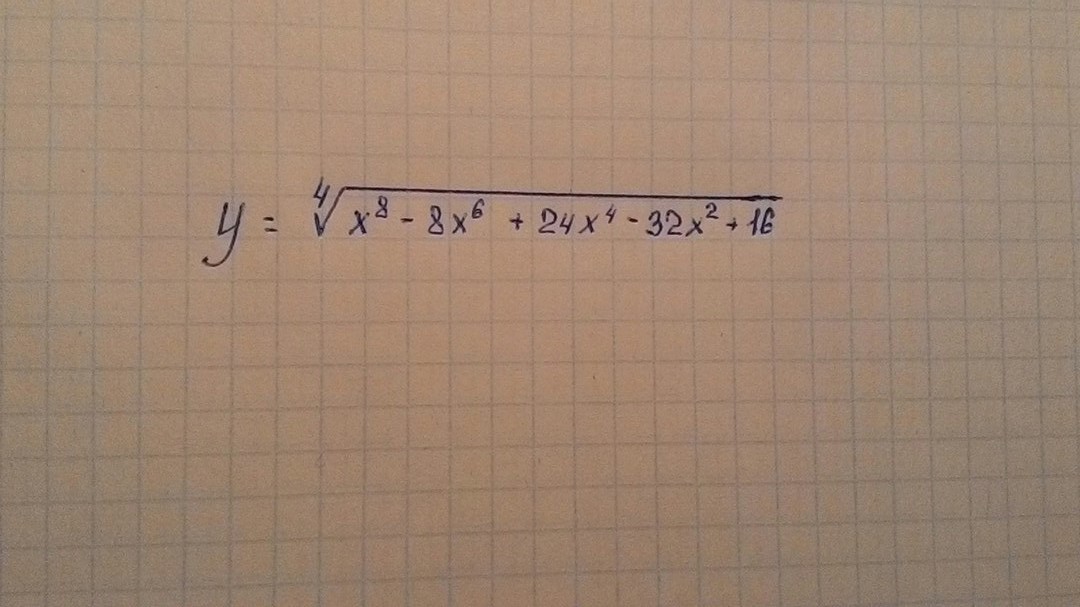 y = ∜(x⁸ - 8x⁶ + 24x⁴ - 32x² + 16)